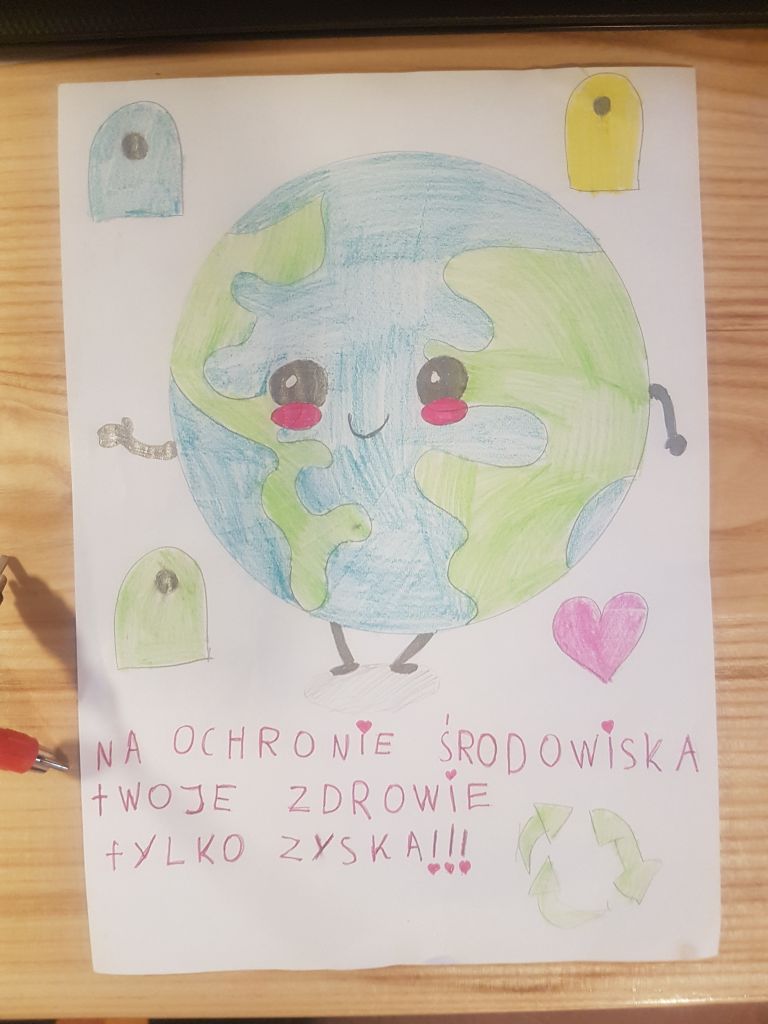 NA OCHRONiE ŚRODOWiSKA
tWOJE ZDROWiE
tYLKO ZYSKA!!!